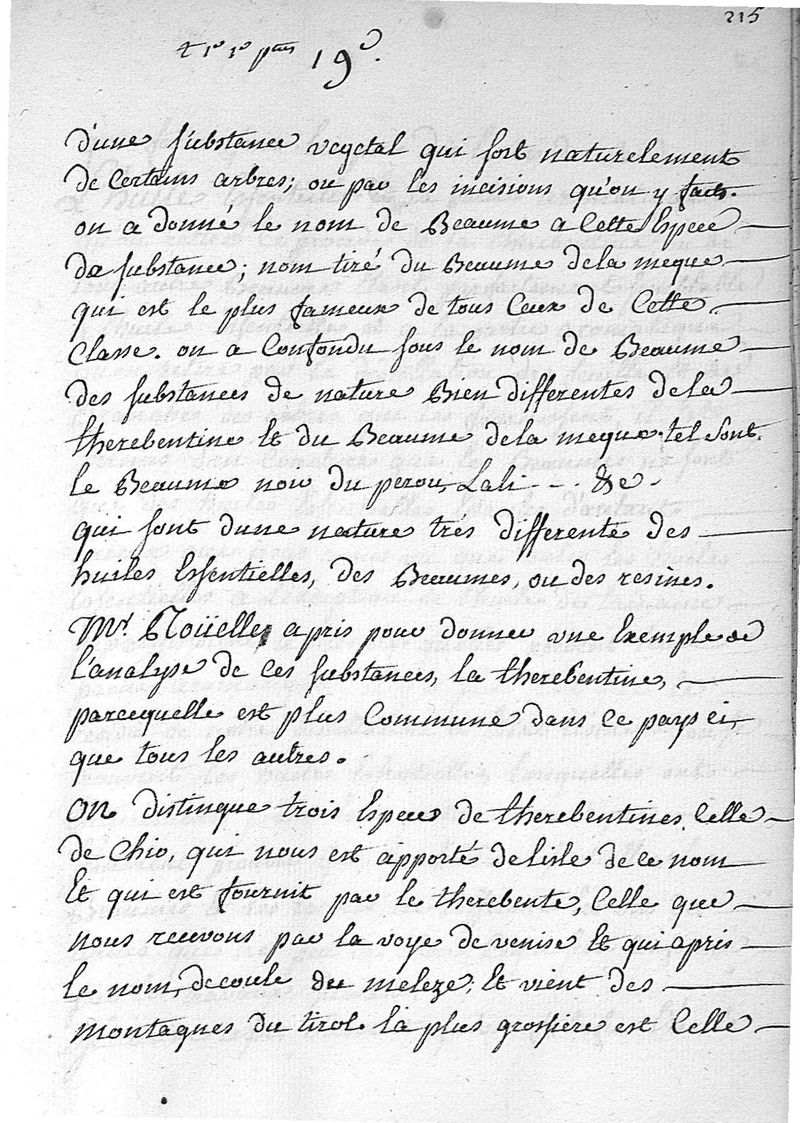 215
19e.
d'une substance vegetal qui sort naturelement
de Certains arbres; ou par les incisions qu'on y fait.
on a donné le nom de Beaume a Cette Espece
da substance; nom tiré du Beaume de la meque
qui est le plus fameux de tous Ceux de Cette
Classe. on a Confondu sous le nom de Beaume
des substances de nature Bien differentes de la
therebentine Et du Beaume de la meque. tel sont
le Beaume noir du perou, Lali - - &e
qui sont dune nature tres differente des
huiles Essentielles, des Beaumes, ou des resines.
Mr. Roüelle, a pris pour donner une Exemple de
l'analyse de ces substances, la therebentine,
parcequelle est plus Commune dans ce pays ci,
que tous les autres.
On distingue trois Especes de therebentines, Celle
de Chio, qui nous est apporté de lisle de ce nom
Et qui est fournit par le therebente, Celle que
nous recevons par la voye de venise Et qui apris
le nom, decoule du meleze, Et vient des
montagues du tirol. la plus grossiere est Celle